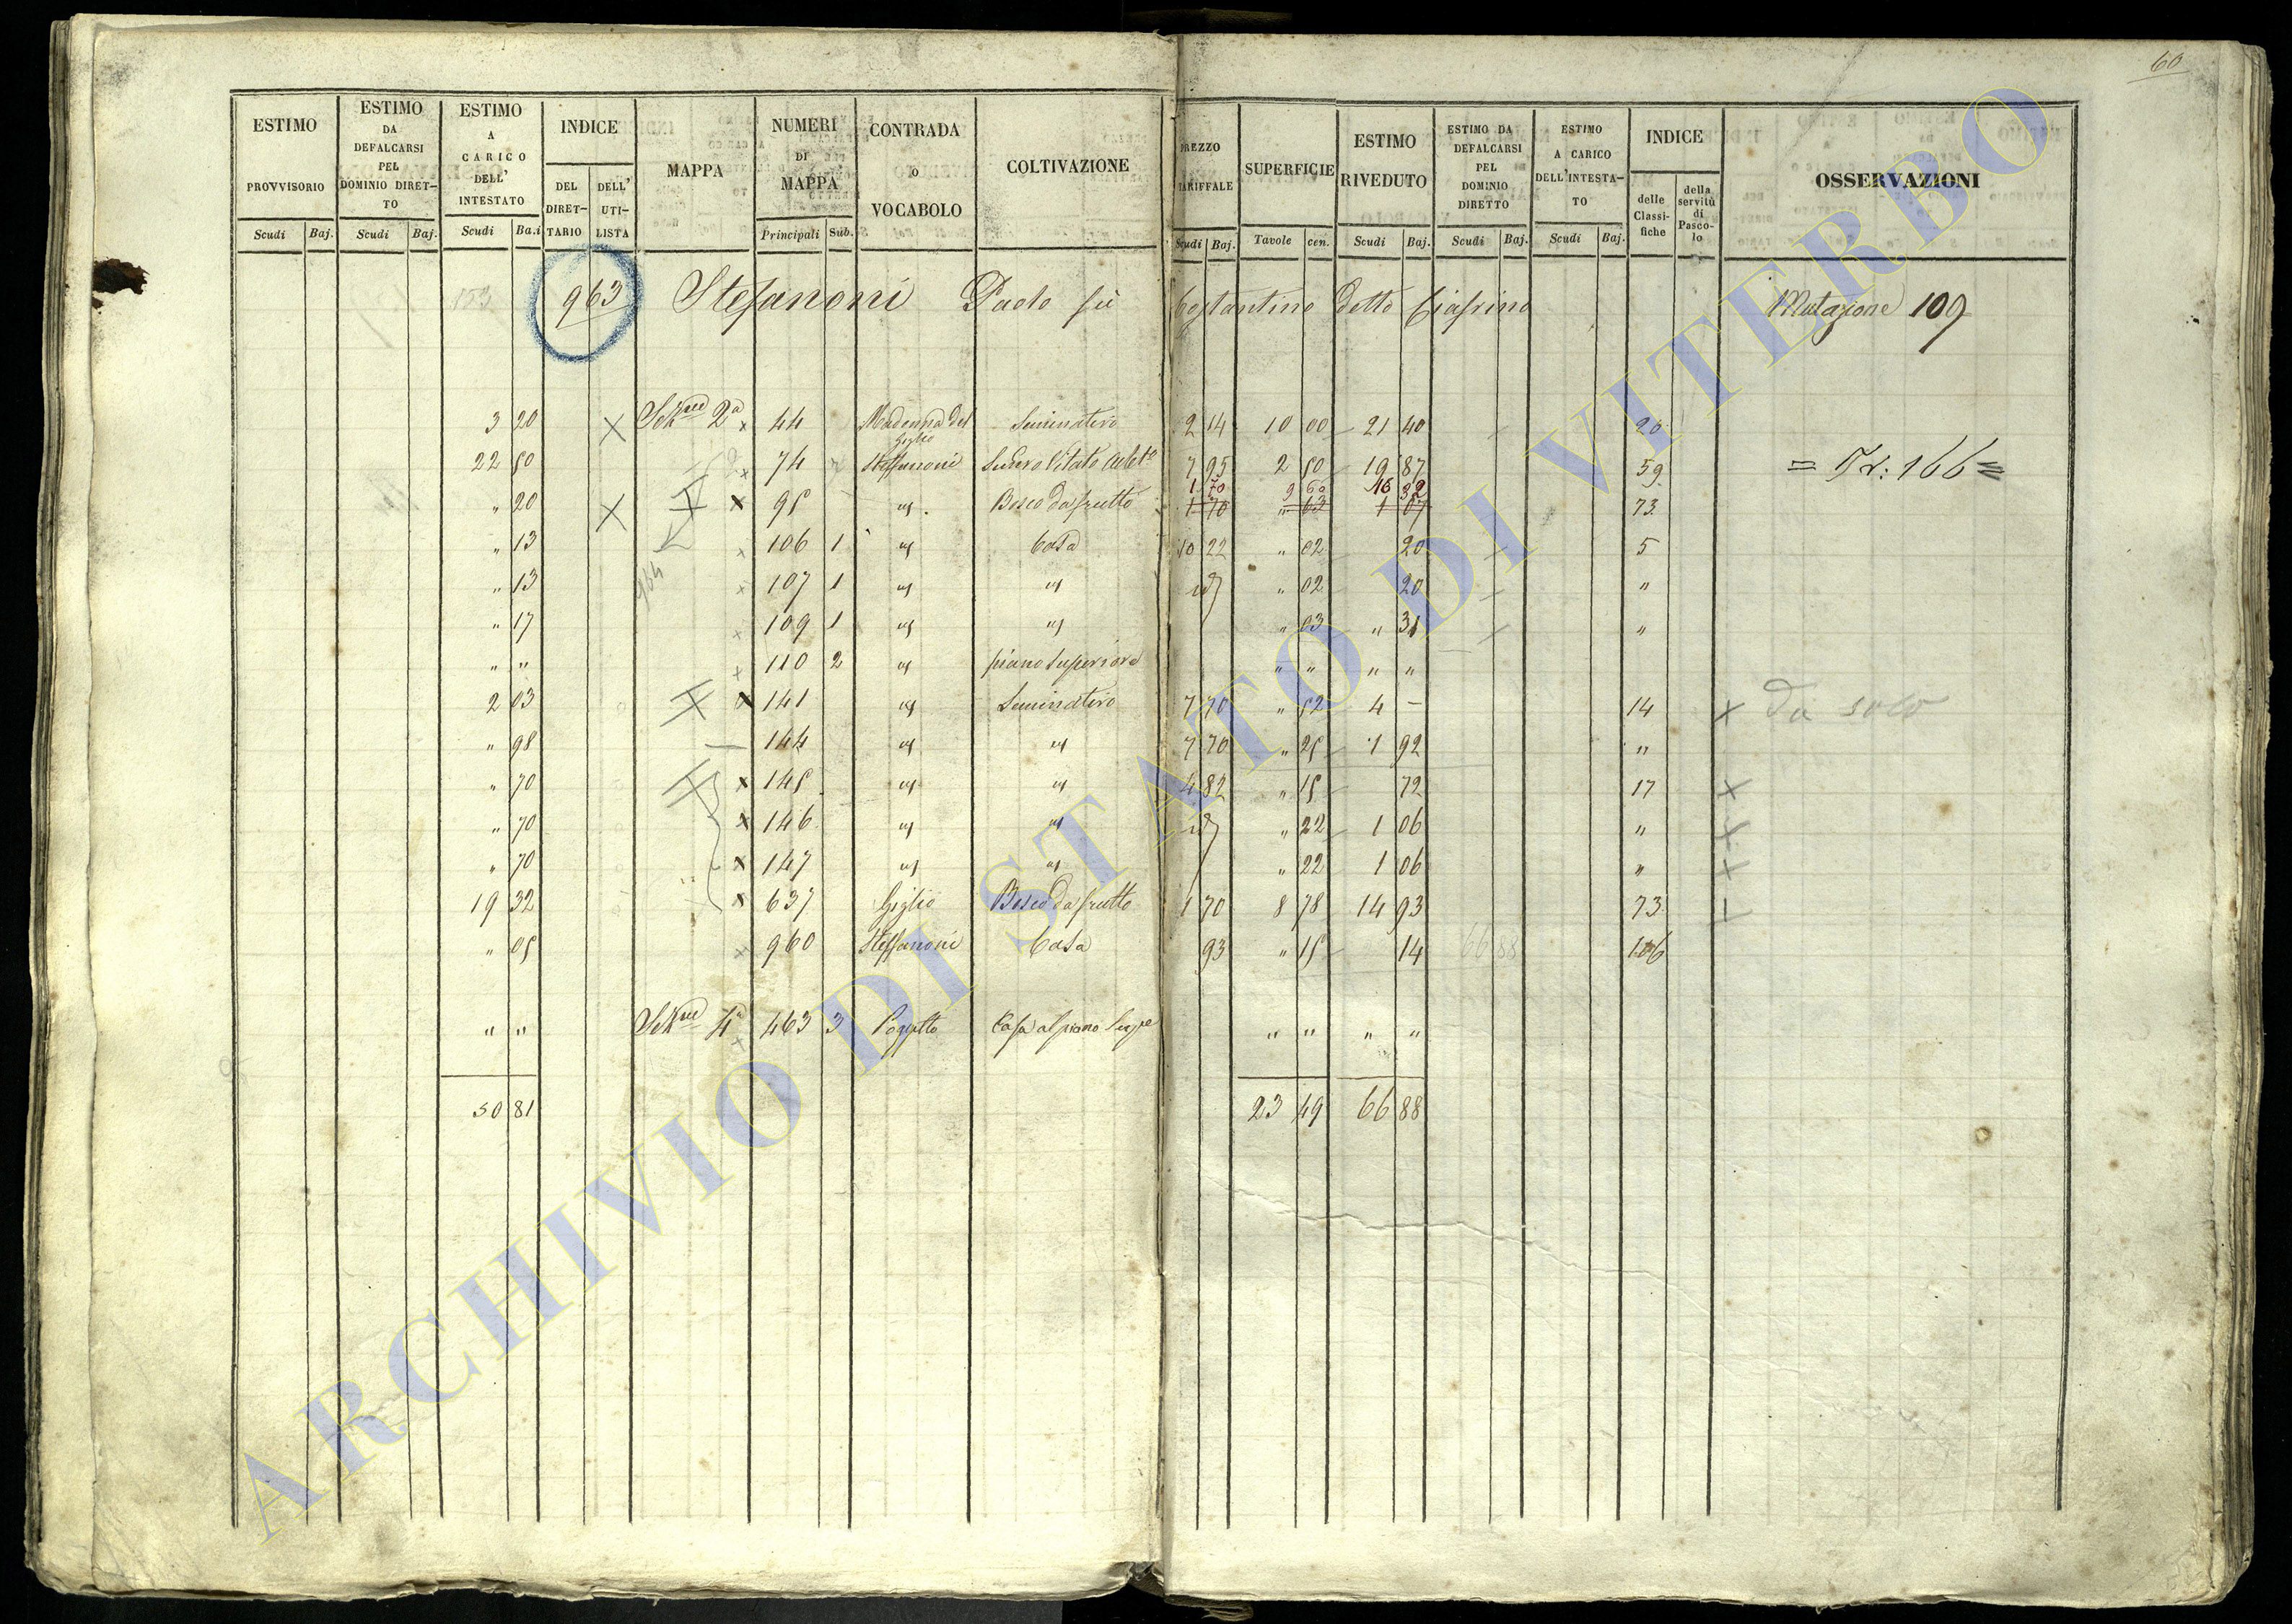 60
ESTIMO PROVVISORIO Scudi Baj.
ESTIMO DA DEFALCARSI PEL DOMINIO DIRET-TO Scudi Baj.
ESTIMO A CARICO DELL' INTESTATO Scudi Ba.i
INDICE DEL DIRET-TARIO DELL' UTI-LISTA
MAPPA
NUMERI DI MAPPA Principali Sub.
CONTRADA O VOCABOLO
COLTIVAZIONE
PREZZO TARIFFALE Scudi Baj.
SUPERFICIE Tavole cen.
ESTIMO RIVEDUTO Scudi Baj.
ESTIMO DA DEFALCARSI PEL DOMINIO DIRETTO Scudi Baj.
ESTIMO A CARICO DELL'INTESTA-TO Scudi Baj.
INDICE delle Classi-fiche della servitù di Pasco-lo
OSSERVAZIONI
153 963 Stefanoni Paolo fù Costantino detto Mutazione 109
3 20 X 2ª x 44 Madonna del Giglio Seminativo 2 14 10 00 21 40 20
22 50 x 74 Steffanoni 7 95 2 50 19 87 59 = 166 =
1 70 9 60 16 32
" 20 X x 95 " Bosco da frutto 1 70 " 63 1 07 73
" 13 x 106 1 " Casa 10 22 " 02 20 5
964
" 13 x 107 1 " " id " 02 20 "
" 17 x 109 1 " " " 03 " 31 "
" " x 110 2 " piano superiore " " " "
2 03 x 141 " Seminativo 7 70 " 52 4 - 14 x Da solo
" 98 — 144 " " 7 70 " 25 1 92 "
" 70 x 145 " " 4 82 " 15 72 17 x
" 70 x 146 " " id " 22 1 06 " x
" 70 x 147 " " " 22 1 06 " x
19 32 x 637 Giglio Bosco da frutto 1 70 8 78 14 93 73
" 05 x 960 Steffanoni Casa 93 " 15 14 66 88 106
" " 4ª x 463 3 Poggetto Casa al piano Supre " " " "
50 81 23 49 66 88
ARCHIVIO DI STATO DI VITERBO